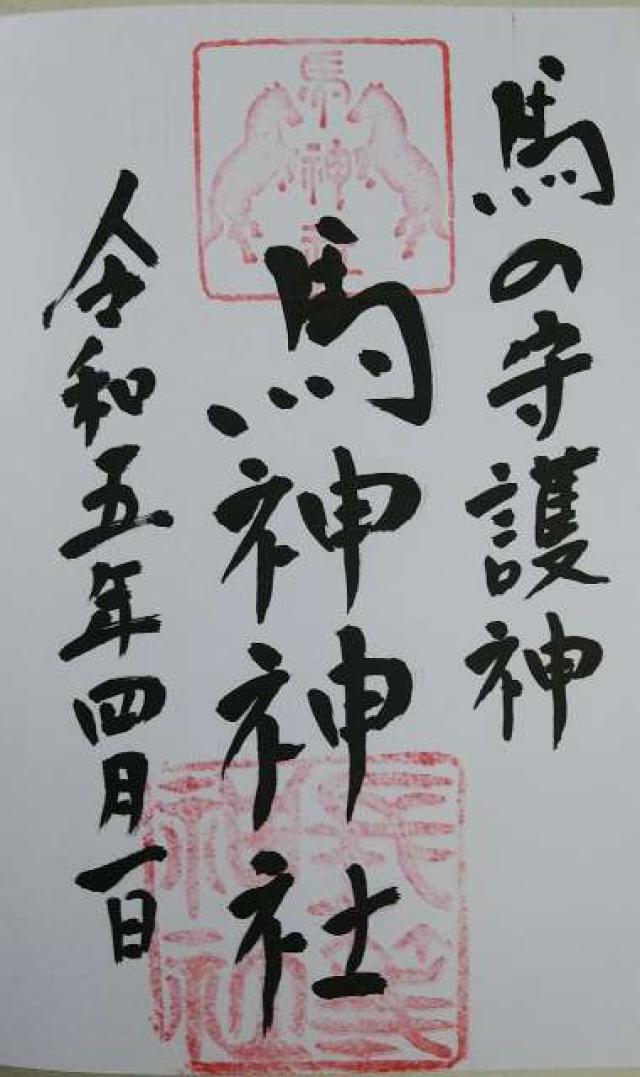 馬の守護神
馬神社
馬神神社
長等神社
令和五年四月一日